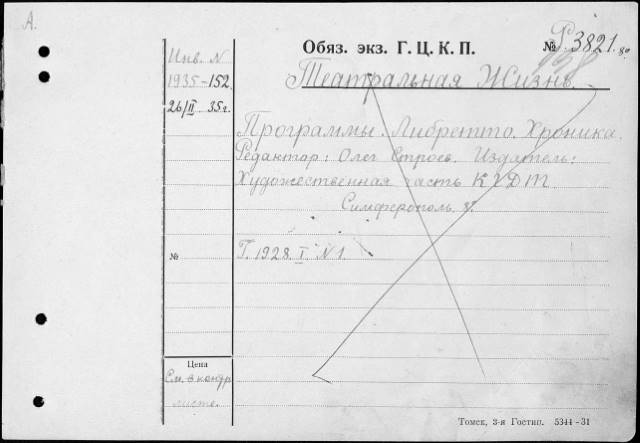 А.
Инв. N
1935-152.
26/II 35г.
Обяз. экз. Г. Ц. К. П.
№ Р. 3821. 80
Театральная Жизнь.
Программы. Либретто. Хроника.
Редактор: Олег Строев. Издатель:
Художественная часть КГДТ
Симферополь. 8°.
№
Г. 1928. I. N 1.
Цена
См. в контр.
листе.
Томск, 3-я Гостип. 5344-31